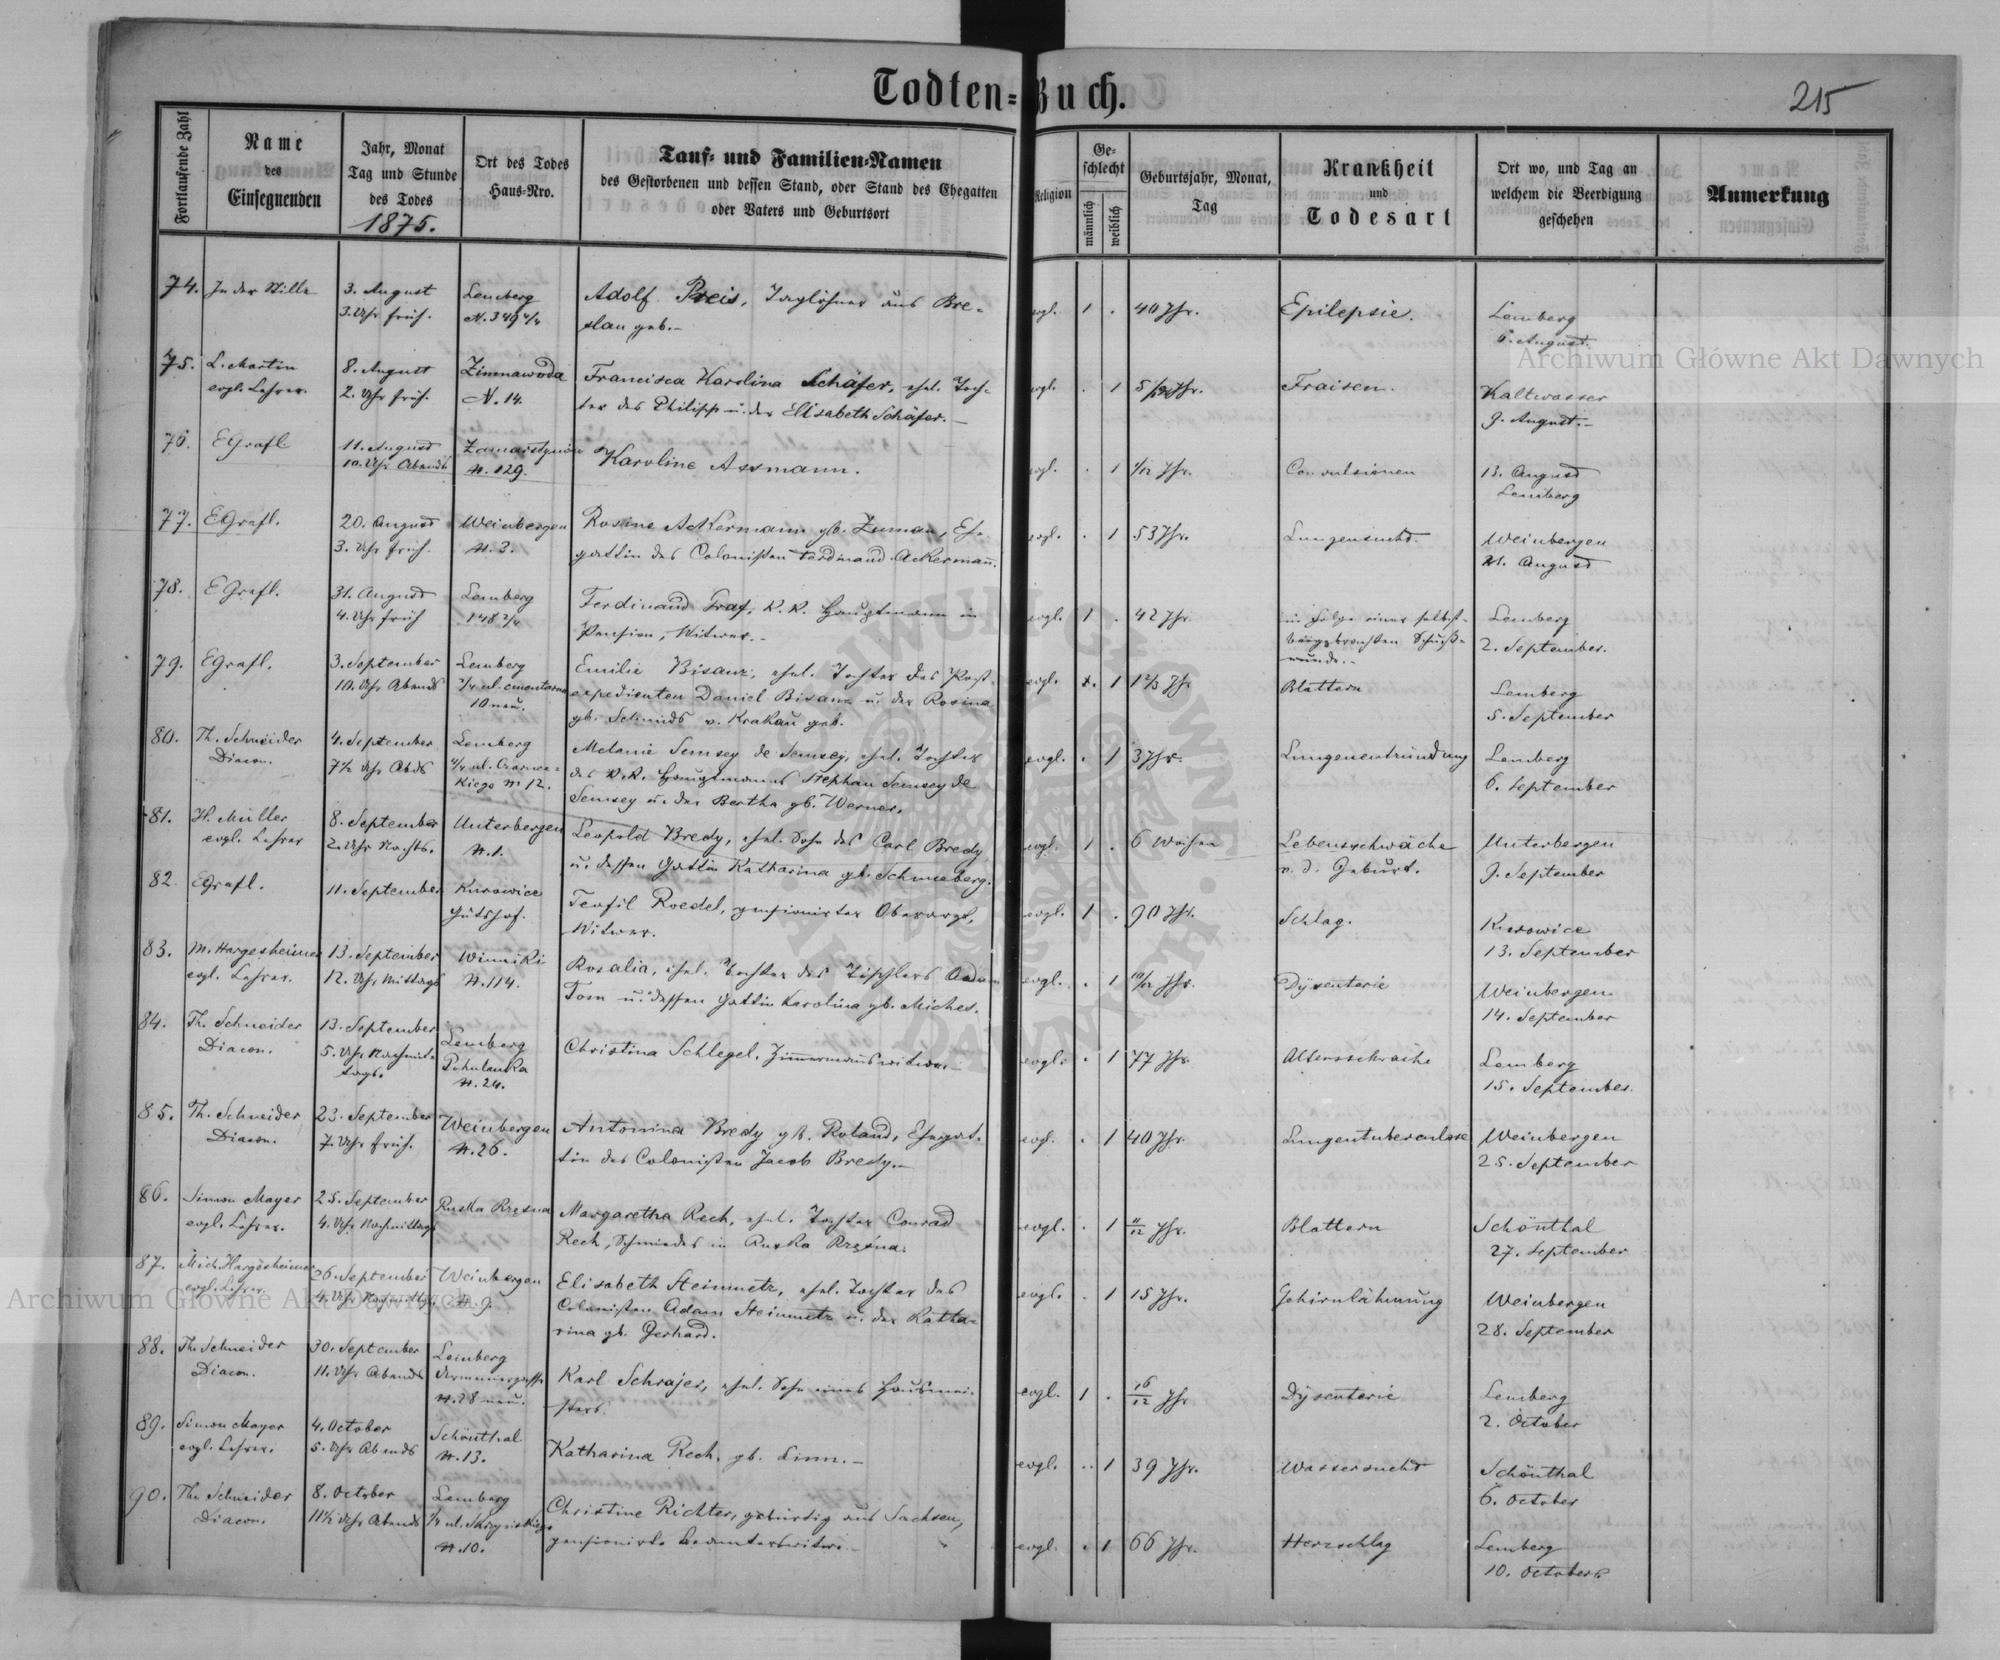 Todten-Buch.
215
Fortlaufende Zahl
Name
des
Einsegnenden
Jahr, Monat
Tag und Stunde
des Todes
1875.
Ort des Todes
Haus-Nro.
Tauf- und Familien-Namen
des Gestorbenen und dessen Stand, oder Stand des Ehegatten
oder Vaters und Geburtsort
Religion
Ge-
schlecht
männlich
weiblich
Geburtsjahr, Monat,
Tag
Krankheit
und
Todesart
Ort wo, und Tag an
welchem die Beerdigung
geschehen
Anmerkung
74. In der Stille
3. August
3. Uhr früh.
Lemberg
N. 349 4/4
Adolf Preis, Taglöhner aus Bre-
slau geb.-
evgl. 1 . 40 Jhr.
Epilepsie.
Lemberg
6. August.
75. L. Martin
evgl. Lehrer.
8. August
2. Uhr früh.
Zimnawoda
N. 14.
Francisca Karolina Schäfer, ehel. Toch-
ter des Philipp u. der Elisabeth Schäfer.-
evgl. . 1 5/12 Jhr.
Fraisen.
Kaltwasser
9. August.-
76. EGrafl
11. August
10. Uhr Abends
Zamarstynów
N. 129.
Karoline Assmann.
evgl. . 1 1/12 Jhr.
Convulsionen
13. August
Lemberg
77. EGrafl.
20. August
3. Uhr früh.
Weinbergen
N. 3.
Rosine Ackermann gb. Zuman, Eh-
gattin des Colonisten Ferdinand Ackermann.
evgl. . 1 53 Jhr.
Lungensucht.
Weinbergen
21. August
78. EGrafl.
31. August
4. Uhr früh
Lemberg
148 2/4
Ferdinand Graf, K. K. Hauptmann in
Pension, Witwer.-
evgl. 1 . 42 Jhr.
in Folge einer selbst-
beigebrachten Schuß-
wunde.-
Lemberg
2. September.
79. EGrafl.
3. September
10. Uhr Abends
Lemberg
ul. cmentarna
10 neu.
Emilie Bisanz, ehel. Tochter des Post-
expedienten Daniel Bisanz u. der Rosina
gb. Schmids v. Krakau geb.
evgl. . 1 1 2/3 Jhr
Blattern
Lemberg
5. September
80. Th. Schneider
Diacon.
4. September
7½ Uhr Abds
Lemberg
4/4 ul. Czarnec-
kiego N 12.
Melanie Semsey de Semsey, ehel. Tochter
des K. K. Hauptmanns Stephan Semsey de
Semsey u. der Bertha gb. Werner.
evgl. . 1 3 Jhr.
Lungenentzündung
Lemberg
6. September
81. H. Müller
evgl. Lehrer
8. September
2. Uhr Nachts.
Unterbergen
N. 1.
Leopold Bredy, ehel. Sohn des Carl Bredy
u. dessen Gattin Katharina gb. Schneeberg.
evgl. 1 . 6 Wochen
Lebensschwäche
v. d. Geburt.
Unterbergen
9. September
82. EGrafl.
11. September
Kurowice
Gutshof.
Teofil Roedel, pensionirter Oberargt,
Witwer.
evgl. 1 . 90 Jhr.
Schlag.
Kurowice
13. September
83. M. Hargesheimer
evgl. Lehrer.
13. September
12. Uhr Mittags
Winniki
N. 114.
Rosalia, ehel. Tochter des Tischlers Adam
Tom u. dessen Gattin Karolina gb. Miches.
evgl. . 1 10/12 Jhr.
Dysenterie
Weinbergen
14. September
84. Th. Schneider
Diacon.
13. September
5. Uhr Nachmit-
tags.
Lemberg
Pohulanka
N. 24.
Christina Schlegel, Zimmermannswitwe.-
evgl. . 1 77 Jhr.
Altersschwäche
Lemberg
15. September.
85. Th. Schneider
Diacon.
23. September
7. Uhr früh.
Weinbergen
N. 26.
Antonina Bredy gb. Roland, Ehegat-
tin des Colonisten Jacob Bredy.-
evgl. . 1 40 Jhr.
Lungentuberculose
Weinbergen
25. September
86. Simon Mayer
evgl. Lehrer.
25. September
4. Uhr Nachmittags
Ruska Rzęsna
Margaretha Rech, ehel. Tochter Conrad
Rech, Schmiedes in Ruska Rzęsna.
evgl. . 1 11/12 Jhr.
Blattern
Schönthal
27. September
87. Mich. Hargesheimer
evgl. Lehrer
26. September
4. Uhr Nachmittags
Weinbergen
N. 9.
Elisabeth Steinmetz, ehel. Tochter des
Colonisten Adam Steinmetz u. der Katha-
rina gb. Gerhard.
evgl. . 1 15 Jhr.
Gehirnlähmung
Weinbergen
28. September
88. Th. Schneider
Diacon.
30. September
11. Uhr Abends
Lemberg
N. 28 neu.
Karl Schrajer, ehel. Sohn eines Hausmei-
sters.
evgl. 1 . 16/12 Jhr
Dysenterie
Lemberg
2. October
89. Simon Mayer
evgl. Lehrer.
4. October
5. Uhr Abends
Schönthal
N. 13.
Katharina Rech, gb. Linn.-
evgl. . 1 39 Jhr.
Wassersucht
Schönthal
6. October
90. Th. Schneider
Diacon.
8. October
11½ Uhr Abends
Lemberg
N. 10.
Christine Richter, gebürtig aus Sachsen,
pensionirte Beamtenswitwe.-
evgl. . 1 66 Jhr.
Herzschlag
Lemberg
10. October.
Archiwum Główne Akt Dawnych
Archiwum Główne Akt Dawnych
ARCHIWUM GŁÓWNE AKT DAWNYCH